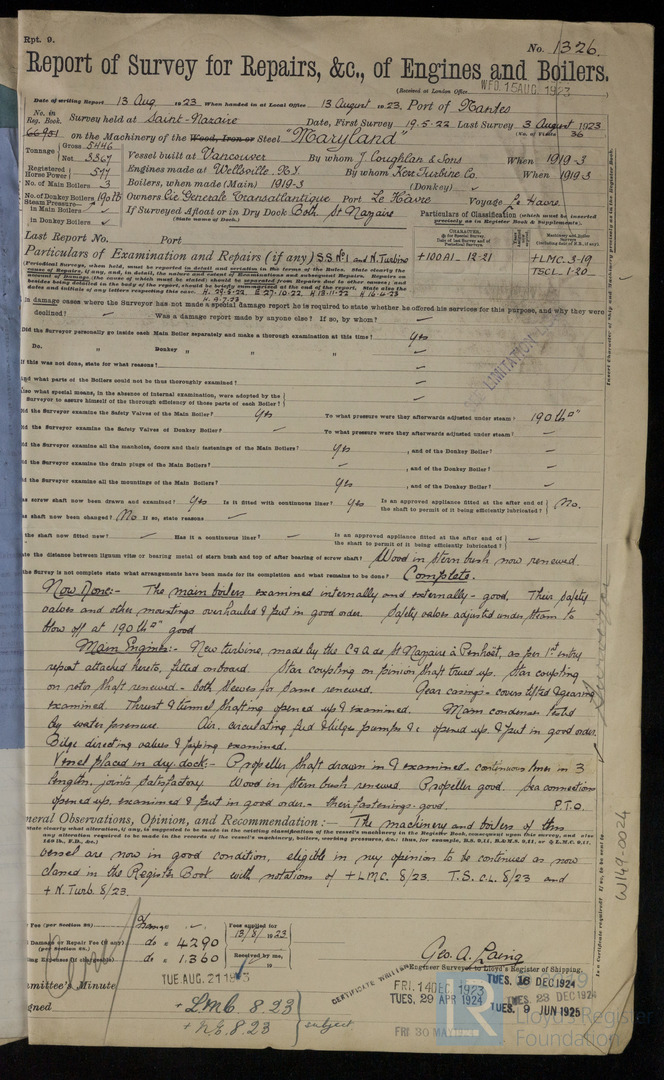 Rpt. 9.
No. 1326.
Report of Survey for Repairs, &c., of Engines and Boilers.
(Received at London Office WED. 15 AUG. 1923
Date of writing Report 13 Aug 1923. When handed in at Local Office 13 August 1923. Port of Nantes
No. in Reg. Book. Survey held at Saint-Nazaire Date, First Survey 19.5.22 Last Survey 3 August 1923
66901 on the Machinery of the Wood, Iron or Steel "Maryland" (No. of Visits 36
Tonnage Gross 5446 Net 3367
Vessel built at Vancouver By whom J. Coughlan & Sons When 1919-3
Registered Horse Power 577 Engines made at Wellsville N.Y. By whom Kerr Turbine Co. When 1919-3
No. of Main Boilers 3 Boilers, when made (Main) 1919-3 (Donkey) ✓
No. of Donkey Boilers Owners Cie Generale Transatlantique Port Le Havre Voyage Le Havre
Steam Pressure in Main Boilers 190 lb
in Donkey Boilers ✓ If Surveyed Afloat or in Dry Dock Both St Nazaire
(State name of Dock.)
Particulars of Classification (which must be inserted precisely as in Register Book & Supplements).
Last Report No. Port
Particulars of Examination and Repairs (if any) S.S. No 1 and N. Turbine
+100A1 - 12-21
+LMC. 3-19
TSCL. 1-20
H. 9.7.23
In damage cases where the Surveyor has not made a special damage report he is required to state whether he offered his services for this purpose, and why they were
declined? — Was a damage report made by anyone else? If so, by whom? —
Did the Surveyor personally go inside each Main Boiler separately and make a thorough examination at this time? Yes
Do. " Donkey " " " —
If this was not done, state for what reasons? —
And what parts of the Boilers could not be thoroughly examined? —
Also what special means, in the absence of internal examination, were adopted by the
Surveyor to assure himself of the thorough efficiency of those parts of each Boiler? —
Did the Surveyor examine the Safety Valves of the Main Boiler? Yes To what pressure were they afterwards adjusted under steam? 190 lb □"
Did the Surveyor examine the Safety Valves of Donkey Boiler? — To what pressure were they afterwards adjusted under steam? —
Did the Surveyor examine all the manholes, doors and their fastenings of the Main Boilers? Yes , and of the Donkey Boiler? —
Did the Surveyor examine the drain plugs of the Main Boilers? — , and of the Donkey Boiler? —
Did the Surveyor examine all the mountings of the Main Boilers? Yes , and of the Donkey Boiler? —
Has screw shaft now been drawn and examined? Yes Is it fitted with continuous liner? Yes Is an approved appliance fitted at the after end of the shaft to permit of it being efficiently lubricated? No.
Has shaft now been changed? No If so, state reasons —
Is the shaft now fitted new? — Has it a continuous liner? — Is an approved appliance fitted at the after end of the shaft to permit of it being efficiently lubricated? —
State the distance between lignum vitæ or bearing metal of stern bush and top of after bearing of screw shaft? Wood in stern bush now renewed.
If the Survey is not complete state what arrangements have been made for its completion and what remains to be done? Complete.
Now Done:- The main boilers examined internally and externally - good. Their safety
valves and other mountings overhauled & put in good order. Safety valves adjusted under steam to
blow off at 190 lb □" good
Main Engines:- New turbine, made by the C & A de St Nazaire à Penhoët, as per 1st entry
report attached hereto, fitted onboard. Star coupling on pinion shaft trued up. Star coupling
on rotor shaft renewed - both sleeves for same renewed. Gear casings - covers lifted & gearing
examined. Thrust & tunnel shafting opened up & examined. Main condenser tested
by water pressure. Air, circulating feed & bilge pumps &c opened up & put in good order.
Bilge directing valves & piping examined.
Vessel placed in dry dock - Propeller shaft drawn in & examined - continuous liner in 3
lengths, joints satisfactory. Wood in stern bush renewed. Propeller good. Sea connections
opened up, examined & put in good order - their fastenings good. P.T.O.
General Observations, Opinion, and Recommendation:— The machinery and boilers of this
vessel are now in good condition, eligible in my opinion to be continued as now
classed in the Register Book with notations of + LMC. 8/23. T.S.C.L. 8/23 and
+ N. Turb. 8/23.
Fee (per Section 28)
Damage or Repair Fee (if any) do = 4290
(per Section 28.)
Travelling Expenses (if chargeable) do = 1.360
Fees applied for 13/8/1923
Received by me,
Geo. A. Laing
Engineer Surveyor to Lloyd's Register of Shipping.
Committee's Minute TUE. AUG. 21 1923
Assigned + LMC 8.23
+ NE 8.23 subject
CERTIFICATE WRITTEN
FRI. 14 DEC. 1923
TUES. 29 APR 1924
TUES. 16 DEC 1924
TUES. 23 DEC 1924
TUES. 9 JUN 1925
FRI 30 MAY
W149-0024
Lloyd's Register
Foundation